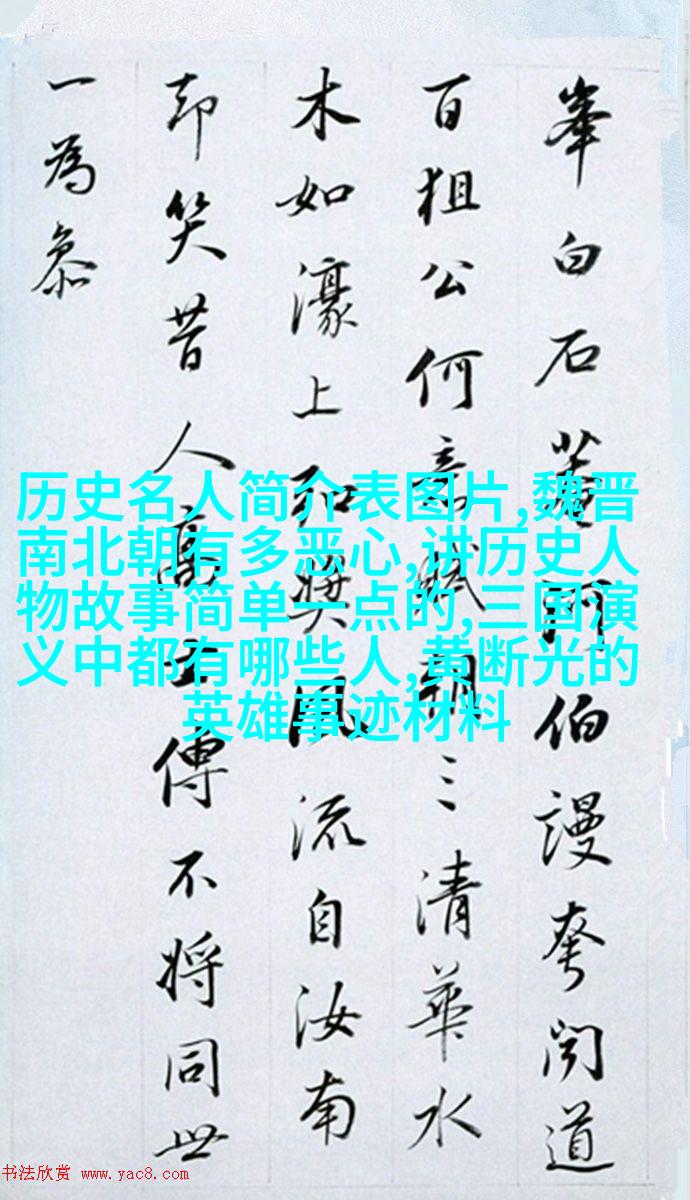 峯白石伯謾夸聞道
百狙公何意賦朝三清華水
木如濠上獎風流自汝南
却笑昔人高士傳不將同世
一為叅
历史名人简介表图片,魏晋
南北朝有多恶心,讲历史人
物故事简单一点的,三国演
义中都有哪些人,黄断光的
英雄事迹材料
书法欣赏 www.yac8.com